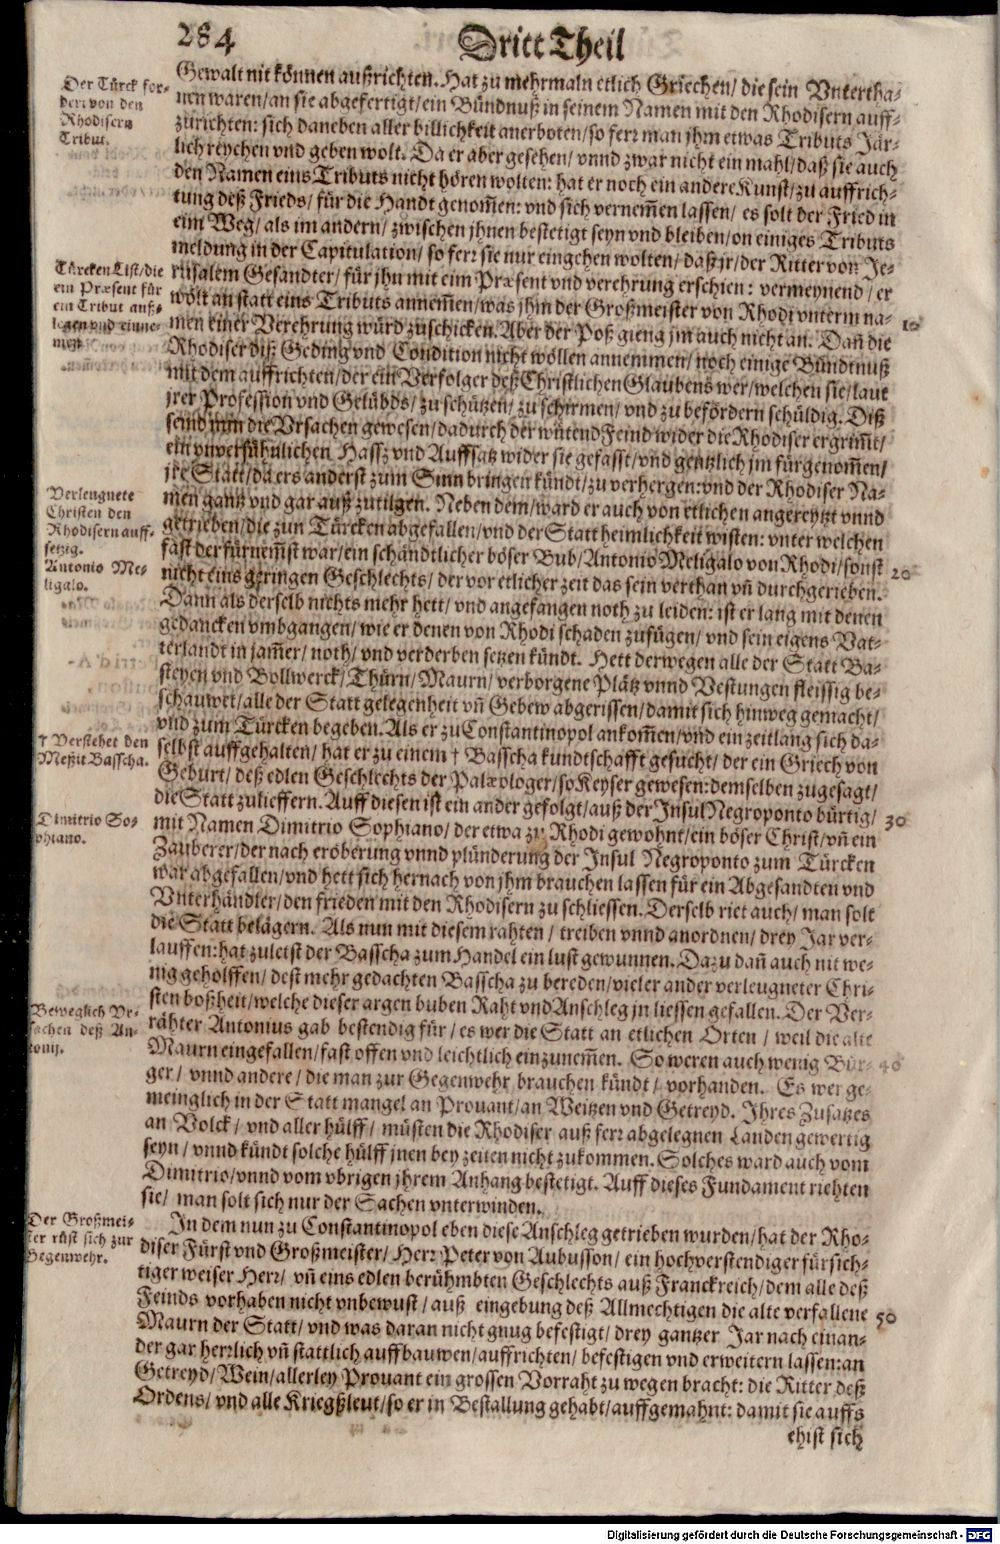 284
Dritt Theil
Der Türck for-
dert von den
Rhodisern
Tribut.
Gewalt nit können außrichten. Hat zu mehrmaln etlich Griechen/ die sein Vntertha-
nen waren/ an sie abgefertigt/ ein Bündnuß in seinem Namen mit den Rhodisern auff-
zurichten: sich daneben aller billichkeit anerboten/ so ferr man jhm etwas Tributs Jär-
lich reychen vnd geben wolt. Da er aber gesehen/ vnnd zwar nicht ein mahl/ daß sie auch
den Namen eins Tributs nicht hören wolten: hat er noch ein andere Kunst/ zu auffrich-
tung deß Frieds/ für die Handt genom̃en: vnd sich vernem̃en lassen/ es solt der Fried in
eim Weg/ als im andern/ zwischen jhnen bestetigt seyn vnd bleiben/ on einiges Tributs
meldung in der Capitulation/ so ferr sie nur eingehen wolten/ daß jr/ der Ritter von Je-
Türcken List/ die
ein Præsent für
ein Tribut auß-
legen vnd einne-
men.
rusalem Gesandter/ für jhn mit eim Præsent vnd verehrung erschien: vermeynend/ er
wölt an statt eins Tributs annem̃en/ was jhm der Großmeister von Rhodi vnterm na-
men einer Verehrung würd zuschicken. Aber der Poß gieng jm auch nicht an. Dañ die
10
Rhodiser diß Geding vnd Condition nicht wöllen annemmen/ noch einige Bündtnuß
mit dem auffrichten/ der ein Verfolger deß Christlichen Glaubens wer/ welchen sie/ laut
jrer Profession vnd Gelübds/ zu schützen/ zu schirmen/ vnd zu befördern schüldig. Diß
seind nun die Vrsachen gewesen/ dadurch der wütend Feind wider die Rhodiser ergrim̃t/
ein vnversühnlichen Hassz vnd Auffsatz wider sie gefasst/ vnd gentzlich jm fürgenom̃en/
jre Statt/ da ers anderst zum Sinn bringen kündt/ zu verhergen: vnd der Rhodiser Na-
Verleugnete
Christen den
Rhodisern auff-
setzig.
Antonio Me-
ligalo.
men gantz vnd gar auß zutilgen. Neben dem/ ward er auch von etlichen angereytzt vnnd
getrieben/ die zun Türcken abgefallen/ vnd der Statt heimlichkeit wisten: vnter welchen
fast der fürnem̃st war/ ein schändtlicher böser Bub/ Antonio Meligalo von Rhodi/ sonst
20
nicht eins geringen Geschlechts/ der vor etlicher zeit das sein verthan vñ durchgerieben.
Dann als derselb nichts mehr hett/ vnd angefangen noth zu leiden: ist er lang mit denen
gedancken vmbgangen/ wie er denen von Rhodi schaden zufügen/ vnd sein eigens Vat-
terlandt in jam̃er/ noth/ vnd verderben setzen kündt. Hett derwegen alle der Statt Ba-
steyen vnd Bollwerck/ Thürn/ Maurn/ verborgene Plätz vnnd Vestungen fleissig be-
schauwet/ alle der Statt gelegenheit vñ Gebew abgerissen/ damit sich hinweg gemacht/
vnd zum Türcken begeben. Als er zu Constantinopol ankom̃en/ vnd ein zeitlang sich da-
† Verstehet den
Meßit Basscha.
selbst auffgehalten/ hat er zu einem † Basscha kundtschafft gesucht/ der ein Griech von
Geburt/ deß edlen Geschlechts der Palæologer/ so Keyser gewesen: demselben zugesagt/
die Statt zulieffern. Auff diesen ist ein ander gefolgt/ auß der Insul Negroponto bürtig/
Dimitrio So-
phiano.
mit Namen Dimitrio Sophiano/ der etwa zu Rhodi gewohnt/ ein böser Christ/ vñ ein
30
Zauberer/ der nach eröberung vnnd plünderung der Insul Negroponto zum Türcken
war abgefallen/ vnd hett sich hernach von jhm brauchen lassen für ein Abgesandten vnd
Vnterhändler/ den frieden mit den Rhodisern zu schliessen. Derselb riet auch/ man solt
die Statt belägern. Als nun mit diesem rahten/ treiben vnnd anordnen/ drey Jar ver-
lauffen: hat zuletst der Basscha zum Handel ein lust gewunnen. Dazu dañ auch nit we-
nig geholffen/ dest mehr gedachten Basscha zu bereden/ vieler ander verleugneter Chri-
sten boßheit/ welche dieser argen buben Raht vnd Anschleg in liessen gefallen. Der Ver-
Beweglich Vr-
sachen deß An-
tonij.
rähter Antonius gab bestendig für/ es wer die Statt an etlichen Orten/ weil die alte
Maurn eingefallen/ fast offen vnd leichtlich einzunem̃en. So weren auch wenig Bür-
40
ger/ vnnd andere/ die man zur Gegenwehr brauchen kündt/ vorhanden. Es wer ge-
meinglich in der Statt mangel an Prouant/ an Weitzen vnd Getreyd. Ihres Zusatzes
an Volck/ vnd aller hülff/ müsten die Rhodiser auß ferr abgelegnen Landen gewertig
seyn/ vnnd kündt solche hülff jnen bey zeiten nicht zukommen. Solches ward auch vom
Dimitrio/ vnnd vom vbrigen jhrem Anhang bestetigt. Auff dieses Fundament riehten
sie/ man solt sich nur der Sachen vnterwinden.
Der Großmei-
ster rüst sich zur
Gegenwehr.
In dem nun zu Constantinopol eben diese Anschleg getrieben wurden/ hat der Rho-
diser Fürst vnd Großmeister/ Herr Peter von Aubusson/ ein hochverstendiger fürsich-
tiger weiser Herr/ vñ eins edlen berühmbten Geschlechts auß Franckreich/ dem alle deß
Feinds vorhaben nicht vnbewust/ auß eingebung deß Allmechtigen die alte verfallene
50
Maurn der Statt/ vnd was daran nicht gnug befestigt/ drey gantzer Jar nach einan-
der gar herrlich vñ stattlich auffbauwen/ auffrichten/ befestigen vnd erweitern lassen: an
Getreyd/ Wein/ allerley Prouant ein grossen Vorraht zu wegen bracht: die Ritter deß
Ordens/ vnd alle Kriegßleut/ so er in Bestallung gehabt/ auffgemahnt: damit sie auffs
ehist sich
Digitalisierung gefördert durch die Deutsche Forschungsgemeinschaft - DFG